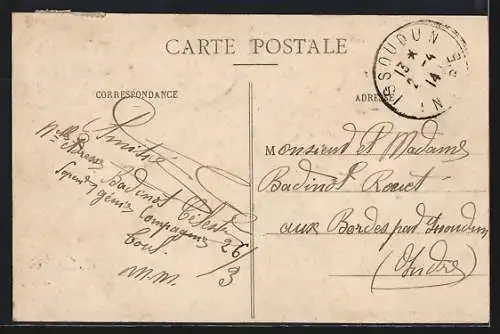 CARTE POSTALE
CORRESPONDANCE
ADRESSE
ISSOUDUN
INDRE
13 *
2 -4
14
Amitié
Badinot Célestin
génie Compagnie
26/3
M.M.
Monsieur et Madame
Badinot Rouet
aux Bordes par Issoudun
(Indre)